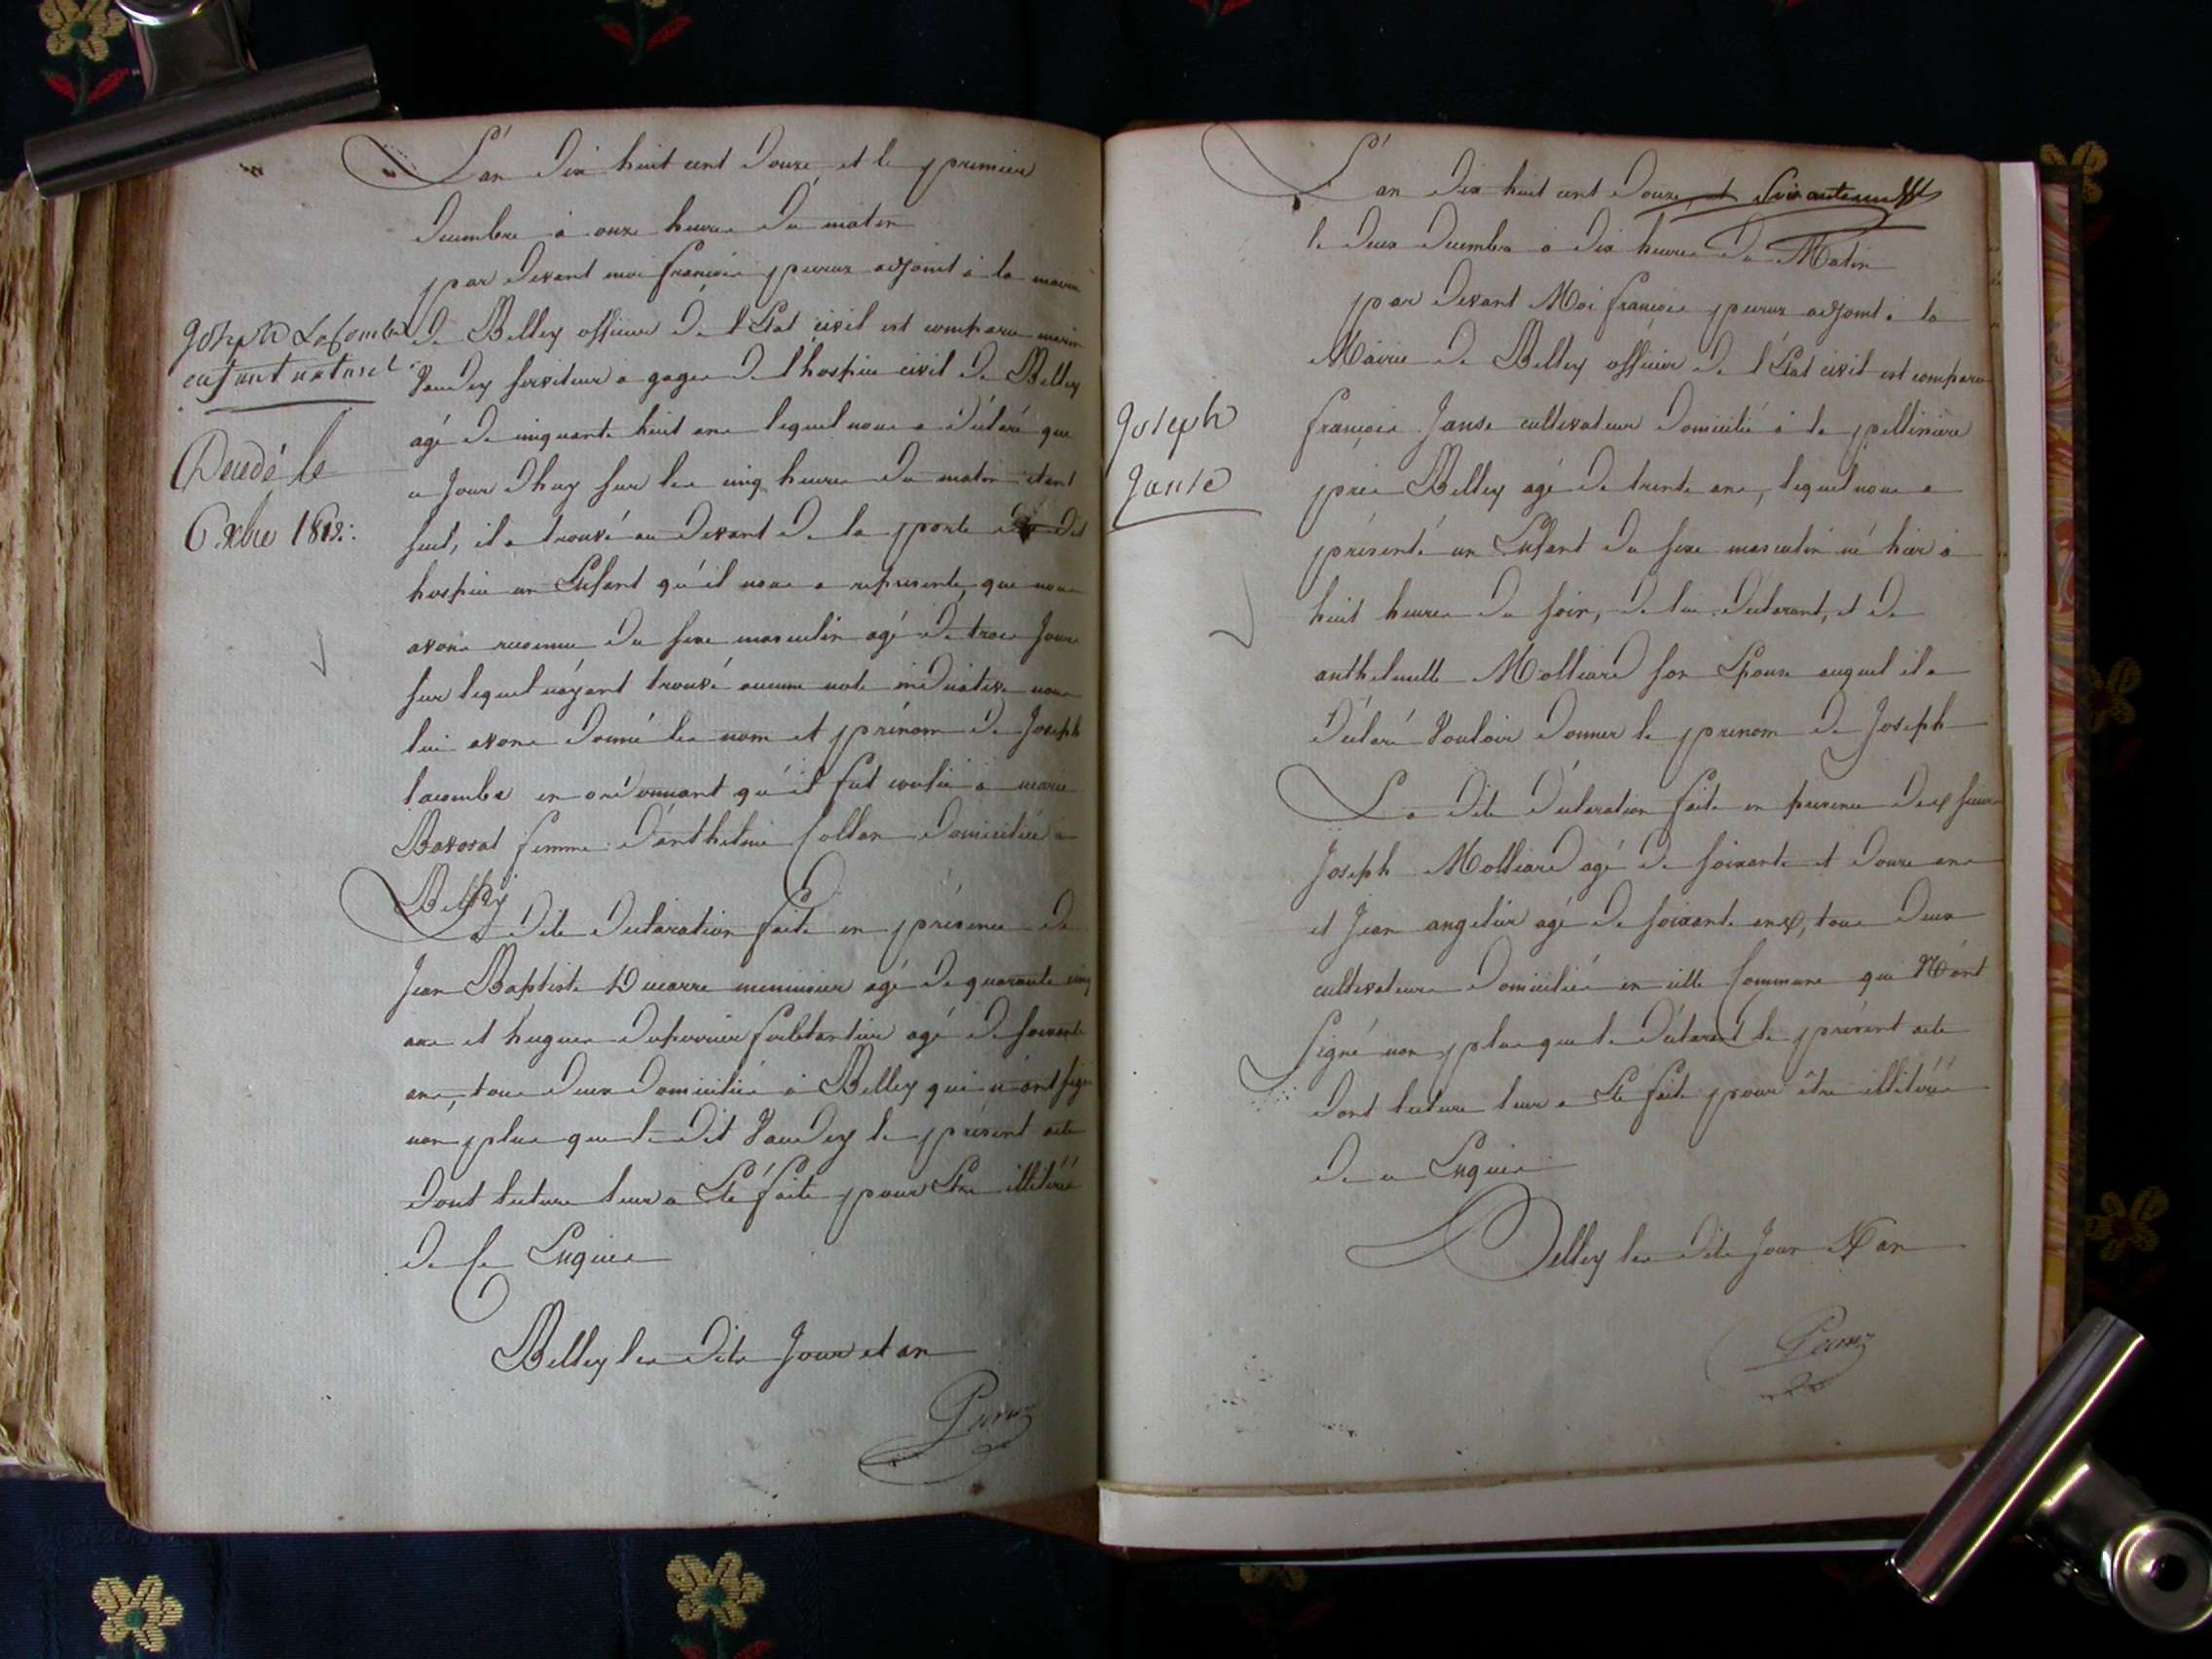 L'an dix huit cent douze, et le premier
decembre à onze heures du matin
par devant moi françois peruz adjoint à la mairie
Joseph Lacombe
enfant naturel
Decedé le
6 Xbre 1812:
de Belley officier de l'Etat civil est comparu marin
Vaudey serviteur a gages de l'hospice civil de Belley
agé de cinquante huit ans lequel nous a déclaré que
ce Jour dhuy sur les cinq heures du matin étant
seul, il a trouvé au devant de la porte du dit
hospice un Enfant qu'il nous a representé, que nous
avons reconnu du sexe masculin agé de trois Jours
sur lequel n'ayant trouvé aucune note indicative nous
lui avons donné les nom et prénom de Joseph
lacombe en ordonnant qu'il fut confié a marie
Bavosat femme d'anthelme Collon domiciliée a
Belley
La dite declaration faite en présence de
Jean Baptiste menuisier agé de quarante cinq
ans et hugues agé de soixante
ans, tous deux domiciliés à Belley qui n'ont signé
non plus que le dit Vaudey le présent acte
dont lecture leur a Eté faite pour Etre illitérés
de ce Enquis
Belley les dits Jour et an
Peruz
L'an dix huit cent douze, et
le deux decembre à dix heures du Matin
par devant Moi françois peruz adjoint à la
Mairie de Belley officier de l'Etat civil est comparu
Joseph
Janse
françois Janse cultivateur domicilié à la pellissière
près Belley agé de trente ans, lequel nous a
présenté un Enfant du sexe masculin né hier à
huit heures du soir, de lui déclarant, et de
anthelmette Molliard son Epouse auquel il a
déclaré Vouloir donner le prenom de Joseph
La dite déclaration faite en presence des sieurs
Joseph Molliard agé de soixante et douze ans
et Jean angelier agé de soixante ans, tous deux
cultivateurs domiciliés en cette Commune qui N'ont
signé non plus que le déclarant le présent acte
dont lecture leur a Eté faite pour être illitérés
de ce Enquis
Belley les dits Jour & an
Peruz